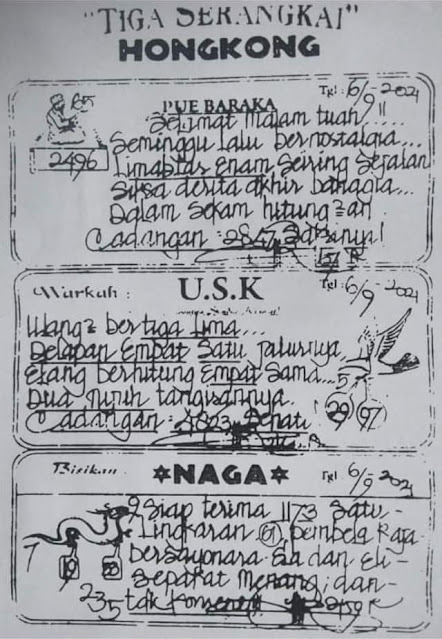 "TIGA SERANGKAI"
HONGKONG
Tgl : 6/9-2021
PUE BARAKA
Selimat malam tuah.....
2496
Seminggu lalu bernostalgia...
Limabelas Enam Seiring Sejalan
Siksa derita akhir bahagia...
Dalam Sekam hitung²an
Cadangan : 2847
Warkah :
U.S.K
Tgl : 6/9 2021
Ulang² bertiga lima...
Delapan Empat Satu jalurnya
Elang berhitung Empat Sama...
Dua Tujuh tangisannya
5
29 97
Cadangan : 4823
Bisikan
NAGA
Tgl 6/9-2021
9 Siap terima 1173 Satu-
Lingkaran 61 pembela Raja
bersayonara Sia dan Eli-
Sepakat menang dan-
7 19
235 tak